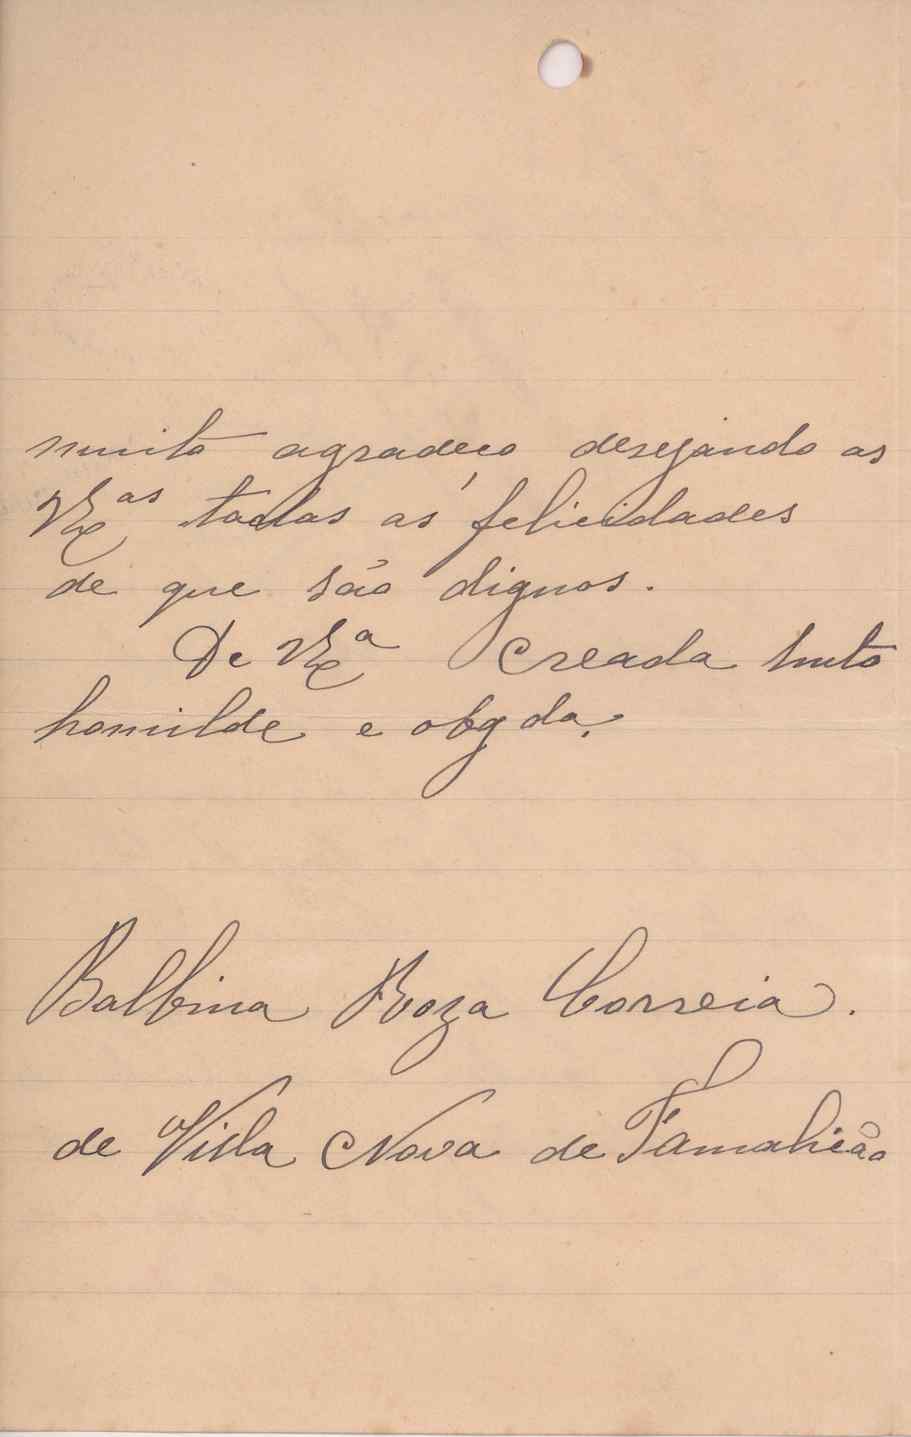 muito agradeço desejando as
VEx.as todas as felicidades
de que são dignos.
De VEx.a Creada muto
homilde e obgda.
Balbina Roza Correia.
de Villa Nova de Famalicão